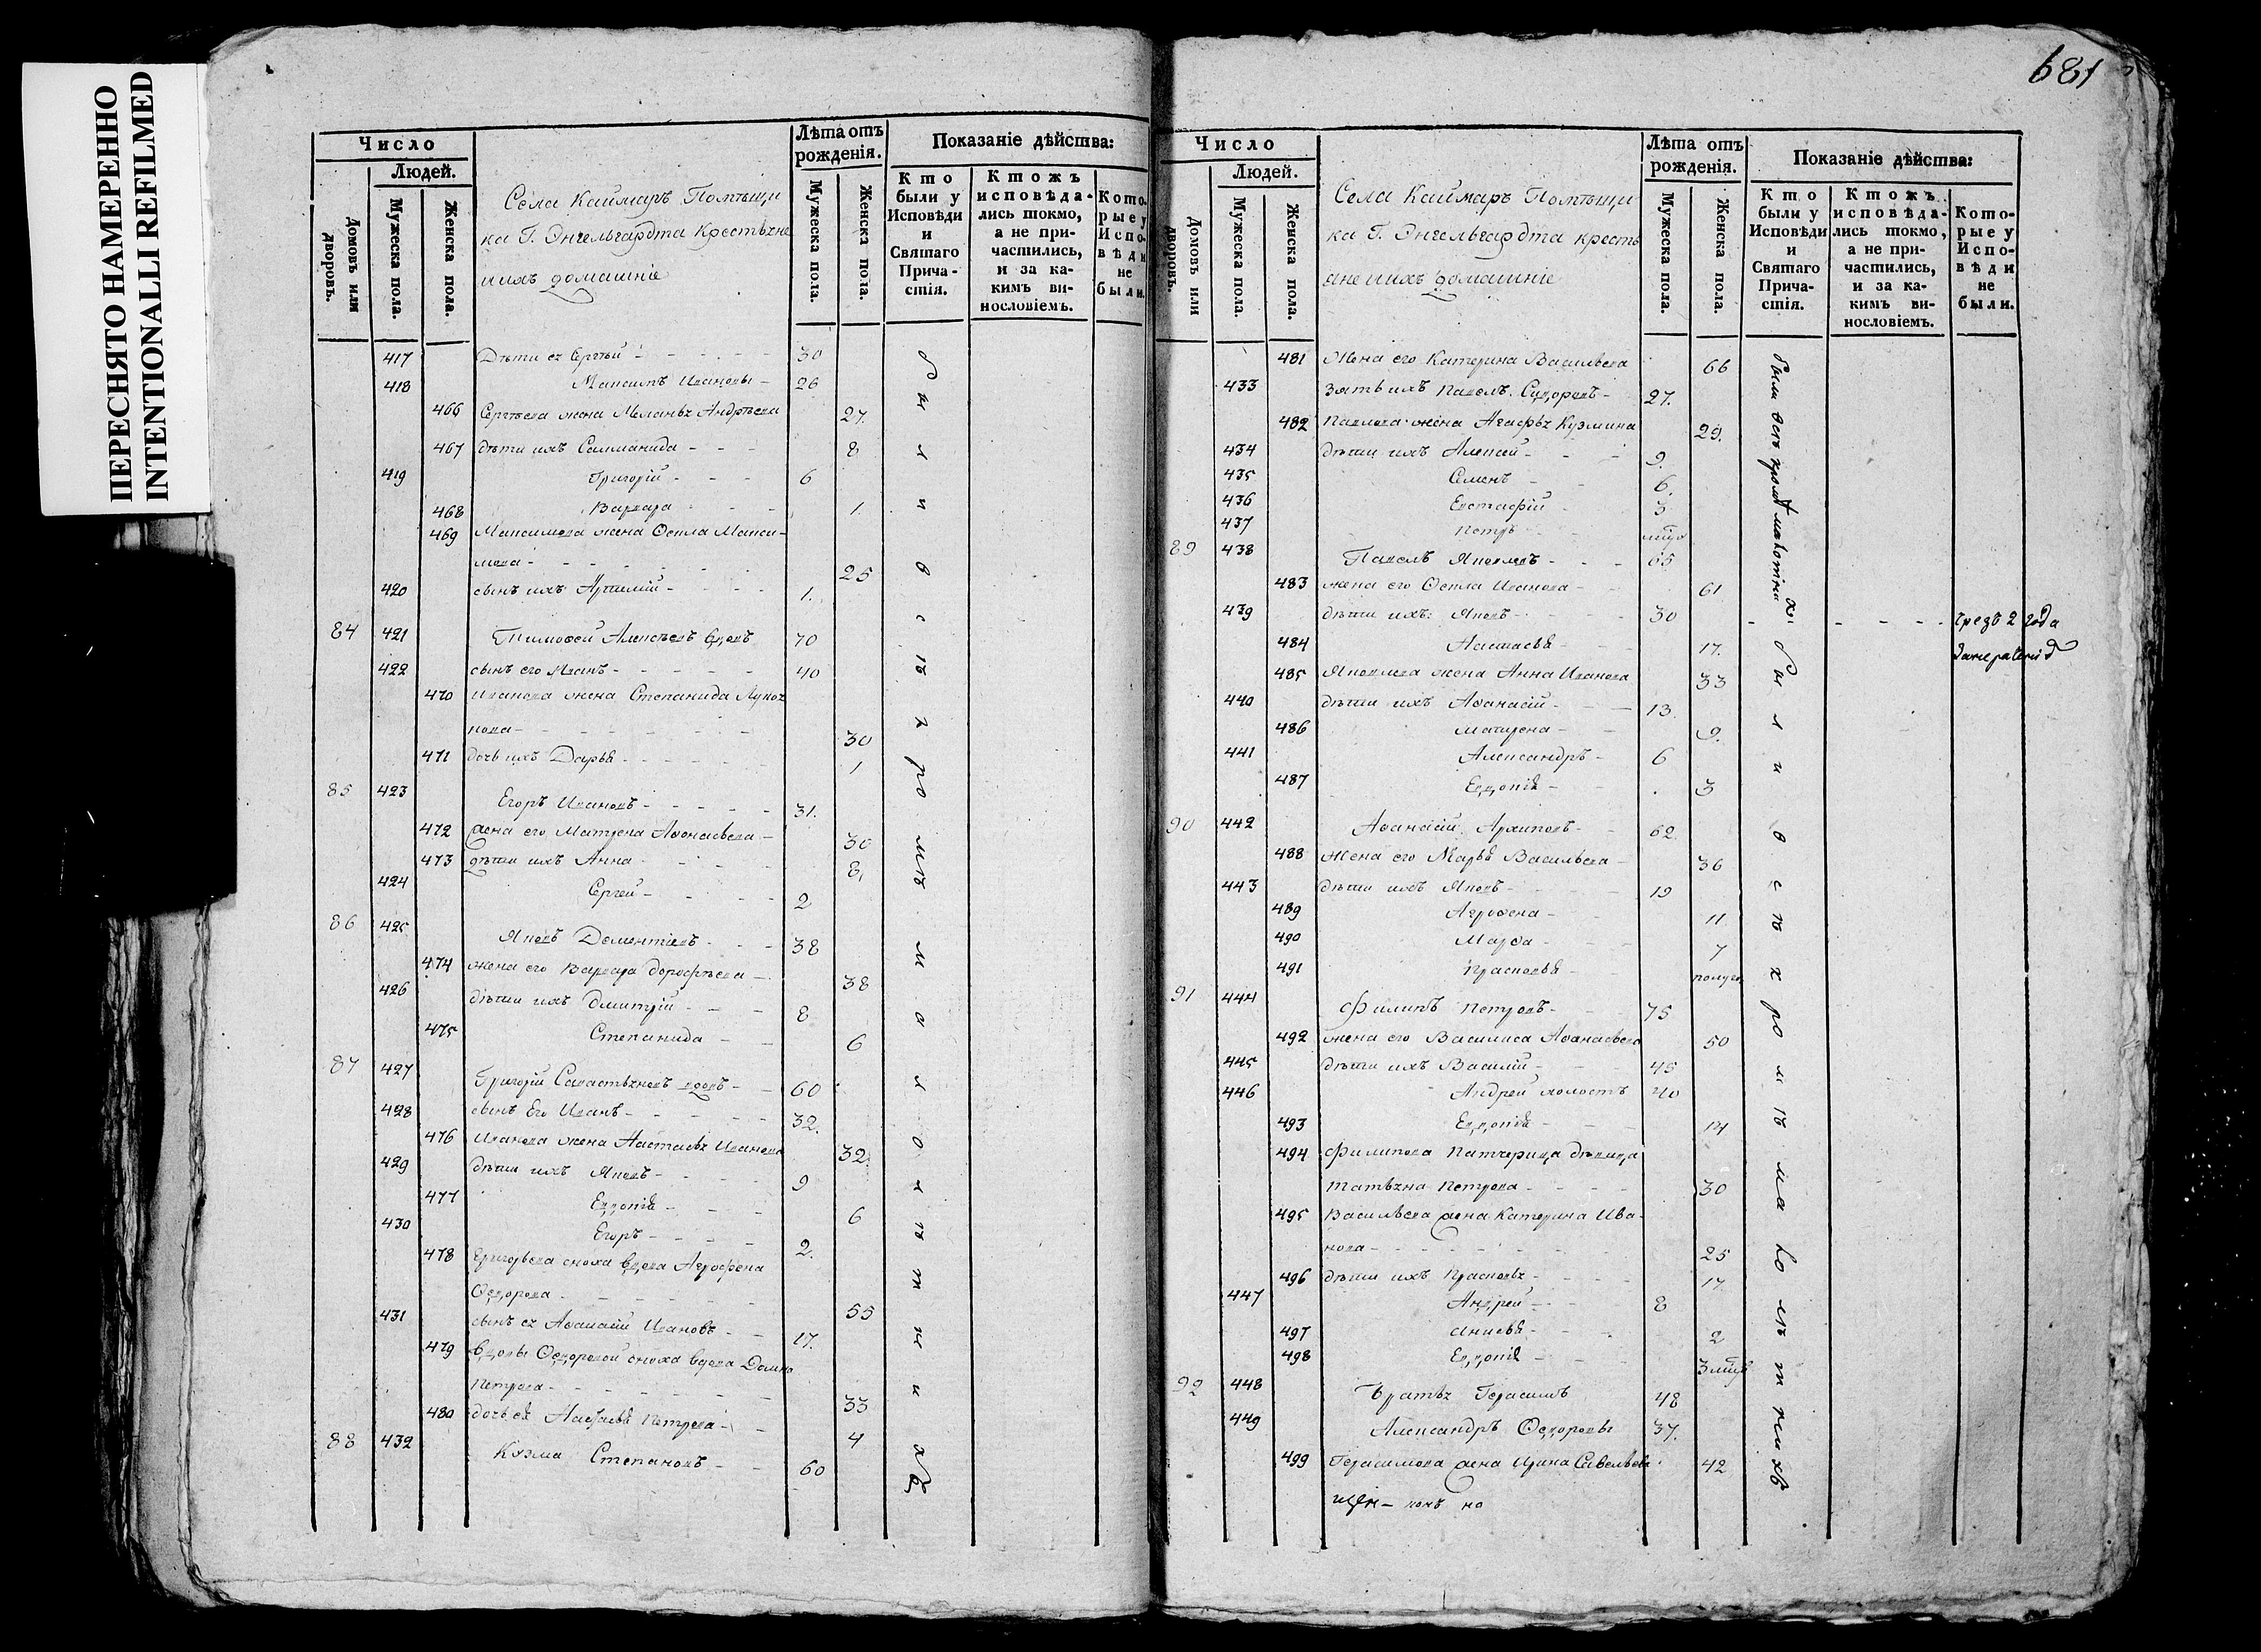 ПЕРЕСНЯТО НАМЕРЕННО
INTENTIONALLI REFILMED
681
Число
Людей.
Домовъ или дворовъ.
Мужеска пола.
Женска пола.
Села Каймаръ Помѣщи
ка Г. Энгельгардта крестьяне
и ихъ домашніе
Лѣта отъ рожденія.
Мужеска пола.
Женска пола.
Показаніе дѣйства:
Кто были у Исповѣди и Святаго Причастія.
Ктожъ исповѣдались токмо, а не причастились, и за какимъ винословіемъ.
Которые у Исповѣди не были.
417 Дѣти ея Сергѣй 30
418 Максимъ Ивановы 26
466 Сергѣева жена Меланья Андрѣева 27.
467 дѣти ихъ Саломанида 8
419 Григорій 6
468 Варвара 1
469 Максимова жена Ѳекла Макси-
мова 25
420 сынъ ихъ Артемій 1.
84 421 Тимофей Алексѣевъ вдовъ 70
422 сынъ его Иванъ 40
470 Иванова жена Степанида Лукоя
нова 30
471 дочь ихъ Дарья 1
85 423 Егоръ Ивановъ 31.
472 жена его Матрена Аѳонасьева 30
473 дѣти ихъ Анна 8,
424 Сергей 2
86 425 Яковъ Дементіевъ 38
474 жена его Варвара Дорофѣева 38
426 дѣти ихъ Дмитрій 8
475 Степанида 6
87 427 Григорій Савастьяновъ вдовъ 60
428 сынъ Его Иванъ 32.
476 Иванова жена Настасья Иванова 32
429 дѣти ихъ Яковъ 9
477 Евдокія 6
430 Егоръ 2.
478 Григорьева сноха вдова Агрофена
Ѳедорова 55
431 сынъ ея Аѳанасій Ивановъ 17.
479 вдовы Ѳедоровой сноха вдова Домна
Петрова 33
480 дочь ея Настасья Петрова 4
88 432 Козма Степановъ 60
были всѣ кромѣ малолѣтнихъ
Число
Людей.
Домовъ или дворовъ.
Мужеска пола.
Женска пола.
Села Каймаръ Помѣщи
ка Г. Энгельгардта кресть
яне и ихъ домашніе
Лѣта отъ рожденія.
Мужеска пола.
Женска пола.
Показаніе дѣйства:
Кто были у Исповѣди и Святаго Причастія.
Ктожъ исповѣдались токмо, а не причастились, и за какимъ винословіемъ.
Которые у Исповѣди не были.
481 Жена его Катерина Васильева 66
433 Зять ихъ Павелъ Сидоровъ 27.
482 Павлова жена Агафья Кузмина 29.
434 дѣти ихъ Алексей 9.
435 Семенъ 6.
436 Евстафій 3
437 Петръ
89 438 Павелъ Яковлевъ 65
483 жена его Ѳекла Иванова 61
439 дѣти ихъ: Яковъ 30
484 Настасья 17.
485 Яковлева жена Анна Иванова 33
440 дѣти ихъ Аѳанасій 13
486 Матрена 9.
441 Александръ 6
487 Евдокія 3
90 442 Аѳанасій Архиповъ 62.
488 Жена его Марья Васильева 36
443 дѣти ихъ Яковъ 19
489 Агрофена 11
490 Марѳа 7
491 Прасковья полуго.
91 444 Филипъ Петровъ 75
492 жена его Василиса Аѳанасьева 50
445 дѣти ихъ Василій 45
446 Андрей холостъ 40
493 Евдокія 14
494 Филипова Патчерица дѣвица
Татьяна Петрова 30
495 Васильева жена Катерина Ива-
нова 25
496 дѣти ихъ Прасковья 17
447 Андрей 8
497 Анисья 2
498 Евдокія
92 448 Братья Герасимъ 48
449 Александръ Ѳедоровы 37.
499 Герасимова жена Ирина Савельева 42
были всѣ кромѣ малолѣтнихъ
чрезъ 2 года
были всѣ кромѣ малолѣтнихъ